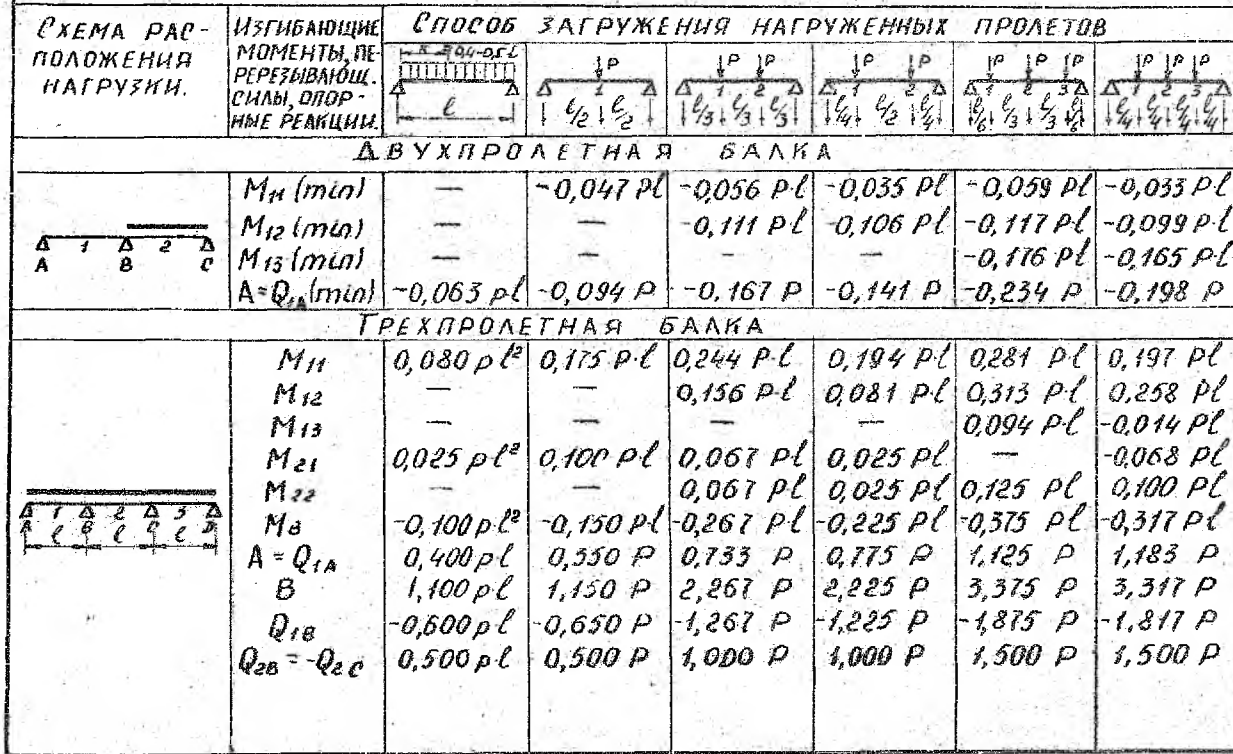 СХЕМА РАС-
ПОЛОЖЕНИЯ
НАГРУЗКИ.
ИЗГИБАЮЩИЕ
МОМЕНТЫ, ПЕ
РЕРЕЗЫВАЮЩ.
СИЛЫ, ОПОР-
НЫЕ РЕАКЦИИ.
СПОСОБ ЗАГРУЖЕНИЯ НАГРУЖЕННЫХ ПРОЛЕТОВ
l
P 1 l/2 l/2
P P 1 2 l/3 l/3 l/3
P P 1 2 l/4 l/2 l/4
P P P 1 2 3 l/6 l/3 l/3 l/6
P P P 1 2 3 l/4 l/4 l/4 l/4
ДВУХПРОЛЕТНАЯ БАЛКА
1 2
A B C
M11 (min) — -0,047 Pl -0,056 P·l -0,035 Pl -0,059 Pl -0,033 P·l
M12 (min) — — -0,111 P·l -0,106 P·l -0,117 P·l -0,099 P·l
M13 (min) — — — — -0,176 Pl -0,165 P·l
A=Q1A (min) -0,063 pl -0,094 P -0,167 P -0,141 P -0,234 P -0,198 P
ТРЕХПРОЛЕТНАЯ БАЛКА
1 2 3
A B C D
l l l
M11 0,080 pl² 0,175 P·l 0,244 P·l 0,194 P·l 0,281 P·l 0,197 Pl
M12 — — 0,156 P·l 0,081 Pl 0,313 P·l 0,258 Pl
M13 — — — — 0,094 P·l -0,014 Pl
M21 0,025 pl² 0,100 Pl 0,067 Pl 0,025 Pl — -0,068 Pl
M22 — — 0,067 Pl 0,025 Pl 0,125 Pl 0,100 Pl
MB -0,100 pl² -0,150 Pl -0,267 Pl -0,225 Pl -0,375 Pl -0,317 Pl
A = Q1A 0,400 pl 0,350 P 0,733 P 0,775 P 1,125 P 1,183 P
B 1,100 pl 1,150 P 2,267 P 2,225 P 3,375 P 3,317 P
Q1B -0,600 pl -0,650 P -1,267 P -1,225 P -1,875 P -1,817 P
Q2B = -Q2C 0,500 pl 0,500 P 1,000 P 1,000 P 1,500 P 1,500 P